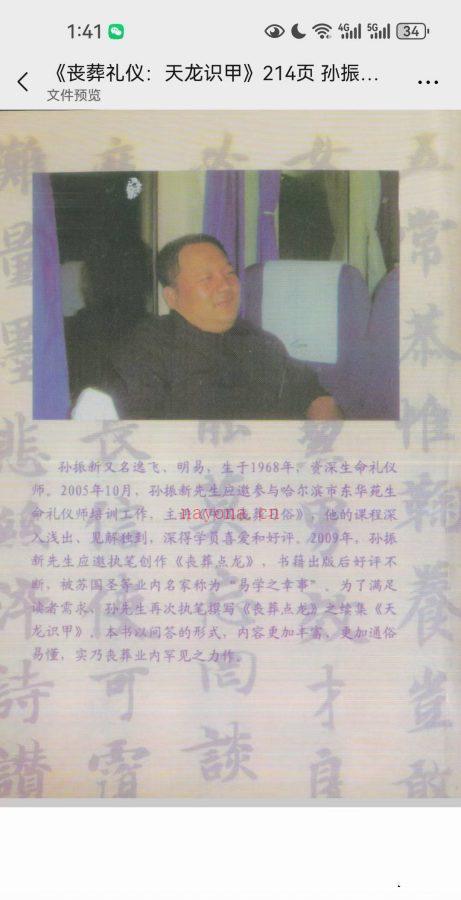 1:41
4G 5G 34
《丧葬礼仪：天龙识甲》214页 孙振...
文件预览
孙振新又名逸飞、明易，生于1968年，资深生命礼仪
师。2005年10月，孙振新先生应邀参与哈尔滨市东华苑生
命礼仪师培训工作，主讲《丧葬习俗》，他的课程深
nayona.cn
入浅出、见解独到，深得学员喜爱和好评。2009年，孙振
新先生应邀执笔创作《丧葬点龙》，书籍出版后好评不
断，被苏国圣等业内名家称为“易学之幸事”。为了满足
读者需求，孙先生再次执笔撰写《丧葬点龙》之续集《天
龙识甲》。本书以问答的形式，内容更加丰富、更加通俗
易懂，实乃丧葬业内罕见之力作。
五常恭惟鞠養豈敢
女 才良
忘罔談
可覆
難量墨悲絲 詩讃